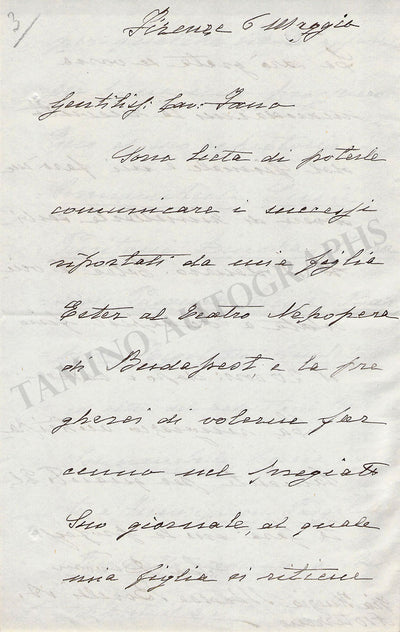 3
Firenze 6 Maggio
Gentiliss: Cav: Fano
Sono lieta di poterle
comunicare i successi
riportati da mia figlia
Ester al Teatro Nepopera
di Budapest, e la pre
gherei di volerne far
cenno nel pregiato
Suo giornale, al quale
mia figlia si ritiene
TAMINO AUTOGRAPHS